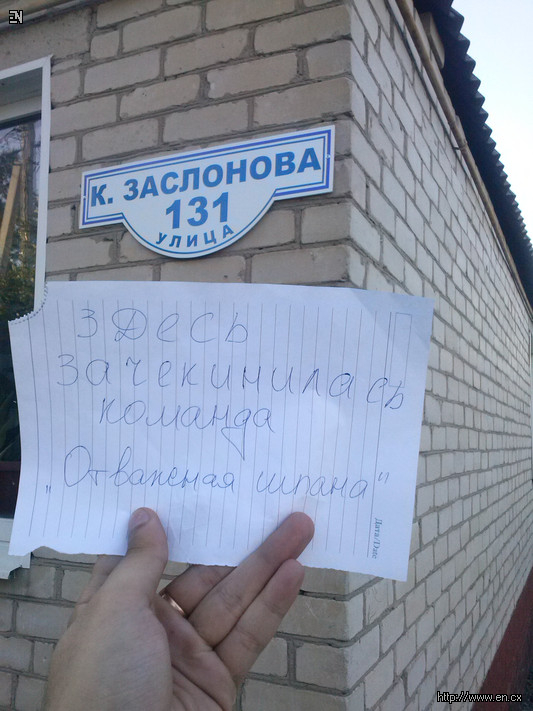 EN
К. ЗАСЛОНОВА
131
УЛИЦА
здесь
зачекинилась
команда
„Отважная шпана"
Дата/Date
http://www.en.cx